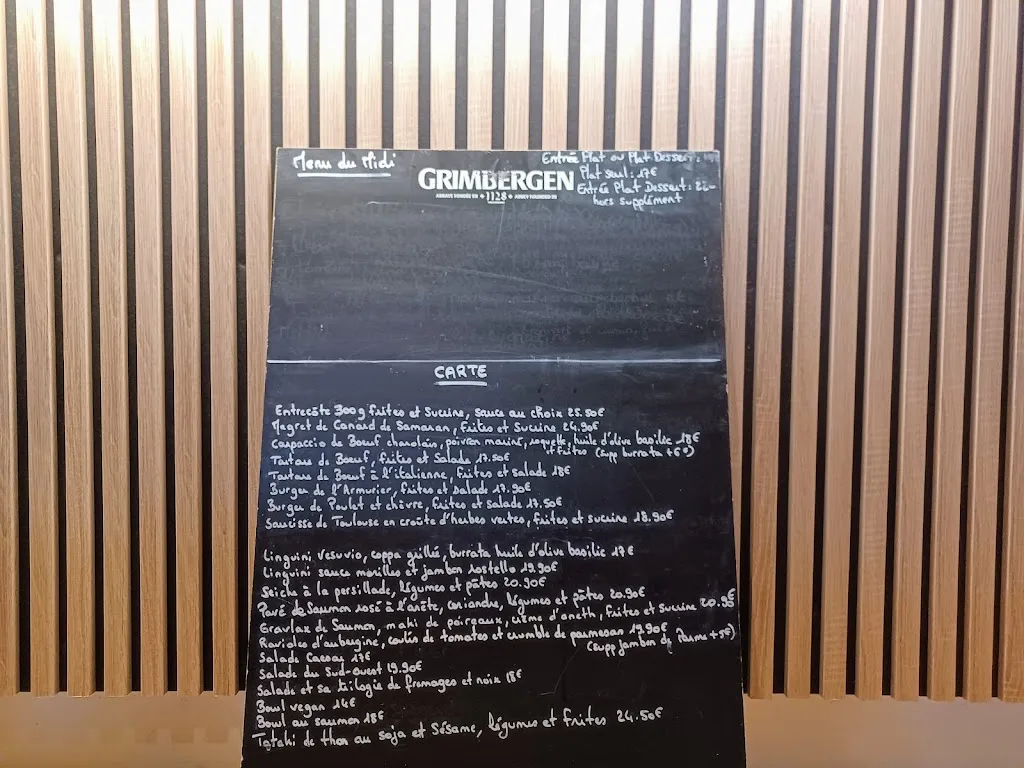 Menu du Midi
GRIMBERGEN
ABBAYE FONDÉE EN 1128 ABBEY FOUNDED IN
Entrée Plat ou Plat Dessert:
Plat seul: 17€
Entrée Plat Dessert:
hors supplément
CARTE
Entrecôte 300g frites et Sucrine, sauce au choix 25.50€
Magret de Canard de Samaran, frites et Sucrine 24.90€
Carpaccio de Boeuf charolais, poivron mariné, roquette, huile d'olive basilic 18€
+ frites (supp burrata +6€)
Tartare de Boeuf, frites et Salade 17.50€
Tartare de Boeuf à l'italienne, frites et salade 18€
Burger de l'Armurier, frites et Salade 17.90€
Burger de Poulet et chèvre, frites et salade 17.50€
Saucisse de Toulouse en croûte d'herbes vertes, frites et sucrine 18.90€
Linguini Vesuvio, coppa grillée, burrata huile d'olive basilic 17€
Linguini sauce morilles et jambon rostello 19.90€
Seiche à la persillade, légumes et pâtes 20.90€
Pavé de Saumon rosé à l'arête, coriandre, légumes et pâtes 20.90€
Gravlax de Saumon, maki de poireaux, crème d'aneth, frites et Sucrine 20.9€
Ravioles d'aubergine, coulis de tomates et crumble de parmesan 19.90€
(supp jambon de Parme +5€)
Salade Caesar 17€
Salade du Sud-Ouest 19.90€
Salade et sa trilogie de fromages et noix 18€
Bowl vegan 14€
Bowl au saumon 18€
Tataki de thon au soja et Sésame, légumes et frites 24.50€